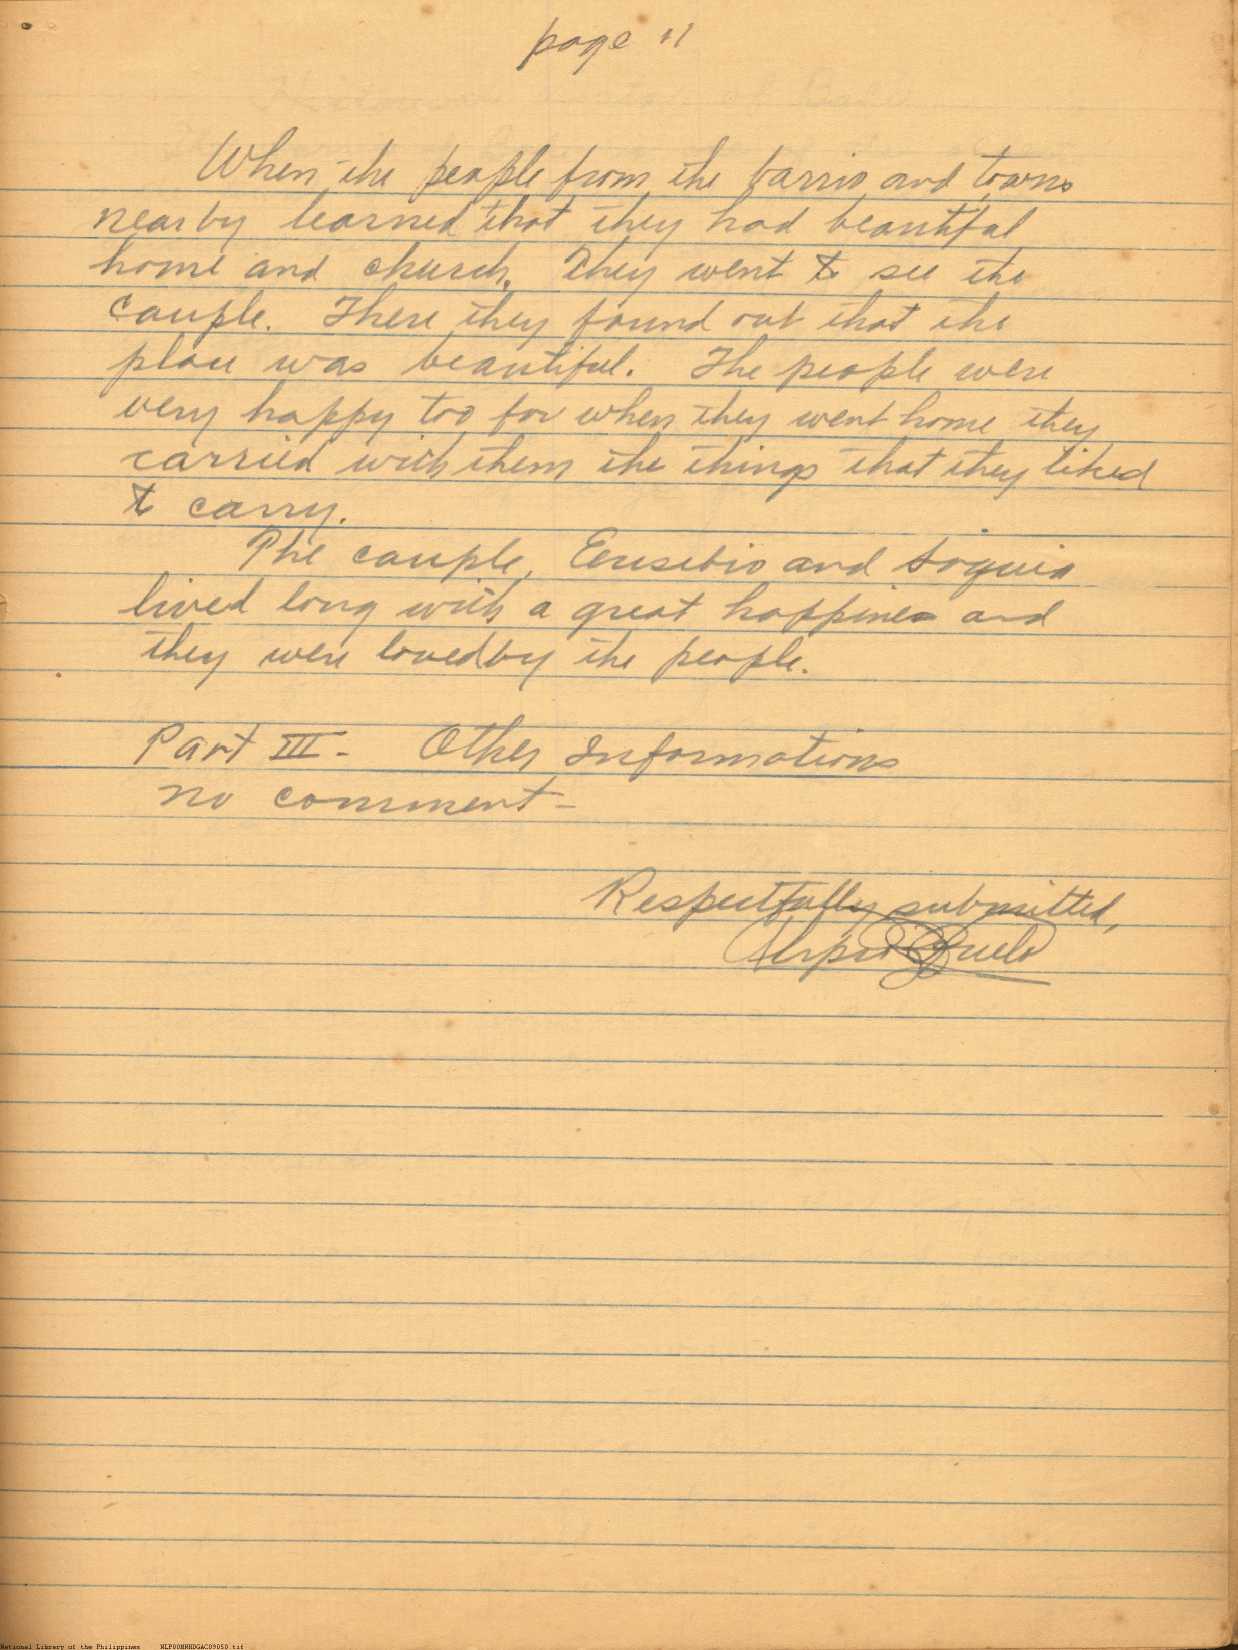 page 11
When the people from the barrio and towns
nearby learned that they had beautiful
home and church, They went to see the
couple. There they found out that the
place was beautiful. The people were
very happy too for when they went home they
carried with them the things that they liked
to carry.
The couple, Eusebio and Siquia
lived long with a great happiness and
they were loved by the people.
Part III - Other Informations
no comment -
Respectfully submitted,
National Library of the Philippines NLP00MNHDGAC09050.tif